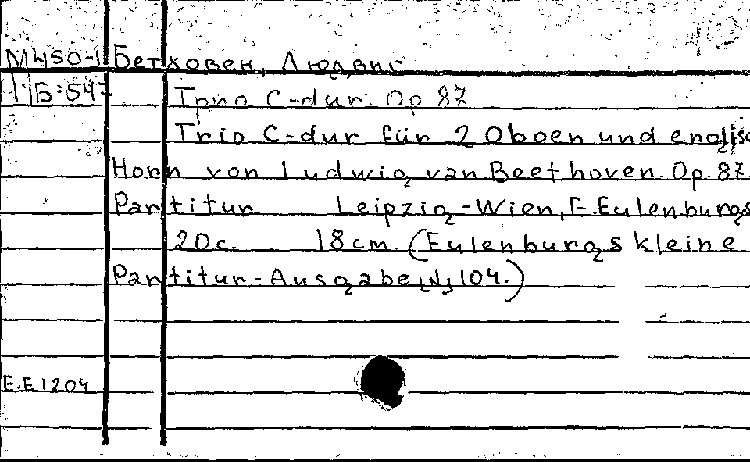 М450-1 Бетховен, Людвиг
Б:547 Трио C-dur. Op 87
Trio C-dur für 2 Oboen und englisc
Horn von Ludwig van Beethoven. Op. 87.
Partitur Leipzig-Wien, E. Eulenburgs
20с. 18cm. (Eulenburgs kleine
Partitur-Ausgabe, N, 104.)
E.E 1204